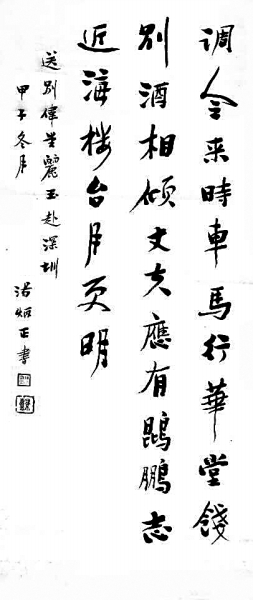 调令来時車馬行華堂餞
别酒相倾丈夫應有鵾鵬志
近海楼台月更明
送别偉麗玉赴深圳
甲子冬月
湯炳正書